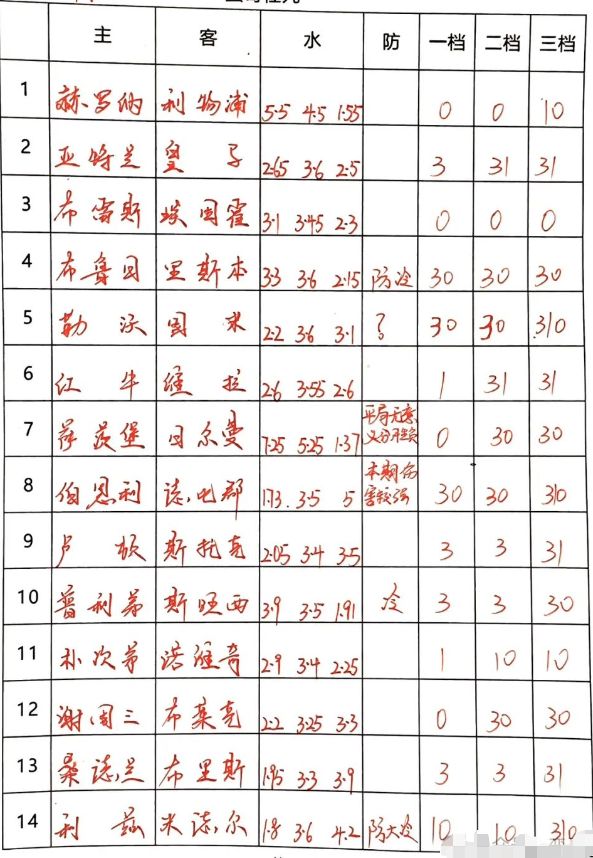 主 客 水 防 一档 二档 三档
1 赫罗纳 利物浦 5.5 4.5 1.55 0 0 10
2 亚特兰 皇子 2.65 3.6 2.5 3 31 31
3 布雷斯 埃因霍 3.1 3.45 2.3 0 0 0
4 布鲁日 里斯本 3.3 3.6 2.15 防冷 30 30 30
5 勒沃 国米 2.2 3.6 3.1 ? 30 30 310
6 红牛 维拉 2.6 3.55 2.6 1 31 31
7 萨茨堡 巴尔曼 7.25 5.25 1.37 平局无意 0 30 30
8 伯恩利 德比郡 1.73 3.5 5 本期伤害较强 30 30 310
9 卢顿 斯托克 2.05 3.4 3.5 3 3 31
10 普利茅 斯旺西 3.9 3.5 1.91 冷 3 3 30
11 朴次茅 诺维奇 2.9 3.4 2.25 1 10 10
12 谢周三 布莱克 2.2 3.25 3.3 0 30 30
13 桑德兰 布里斯 1.95 3.3 3.9 3 3 31
14 利兹 米德尔 1.8 3.6 4.2 防大冷 10 10 310